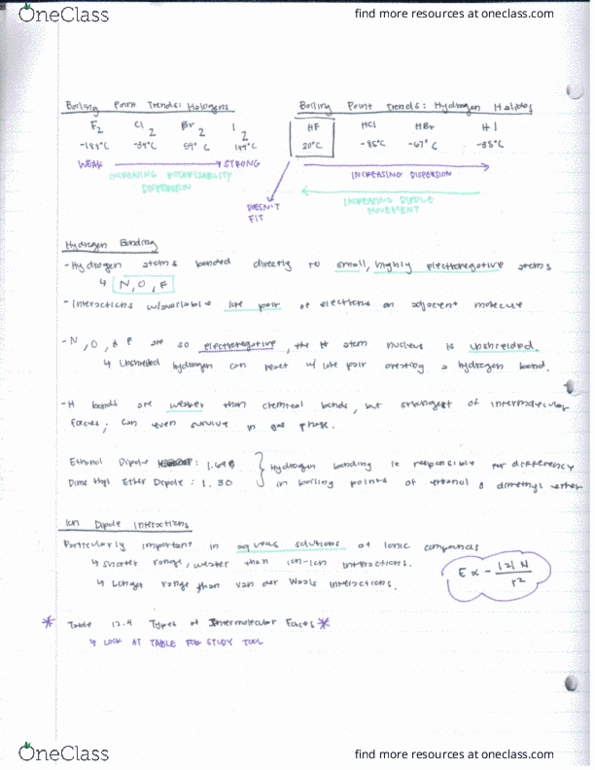 OneClass
find more resources at oneclass.com
Boiling Point Trends: Halogens
Boiling Point Trends: Hydrogen Halides
F2 Cl2 Br2 I2
HF HCl HBr HI
-188°C -34°C 59°C 184°C
20°C -85°C -67°C -35°C
WEAK STRONG
INCREASING POLARIZABILITY
DISPERSION
INCREASING DISPERSION
DOESN'T
FIT
INCREASING DIPOLE
MOVEMENT
Hydrogen Bonding
-Hydrogen atoms bonded directly to small, highly electronegative atoms
↳ N, O, F
-Interactions w/available lone pair of electrons on adjacent molecule
-N, O, & F are so electronegative, the H atom nucleus is unshielded.
↳ Unshielded hydrogen can react w/ lone pair creating a hydrogen bond.
-H bonds are weaker than chemical bonds, but strongest of intermolecular
forces; can even survive in gas phase.
Ethanol Dipole : 1.69
Dimethyl Ether Dipole : 1.30
Hydrogen bonding is responsible for differency
in boiling points of ethanol & dimethyl ether
Ion Dipole Interactions
Particularly important in aqueous solutions of ionic compounds
↳ shorter range, weaker than ion-ion interactions.
↳ Longer range than van der Waals interactions.
E ∝ - |z| μ / r²
* Table 12.4 Types of Intermolecular Forces *
↳ LOOK AT TABLE FOR STUDY TOOL
OneClass
find more resources at oneclass.com